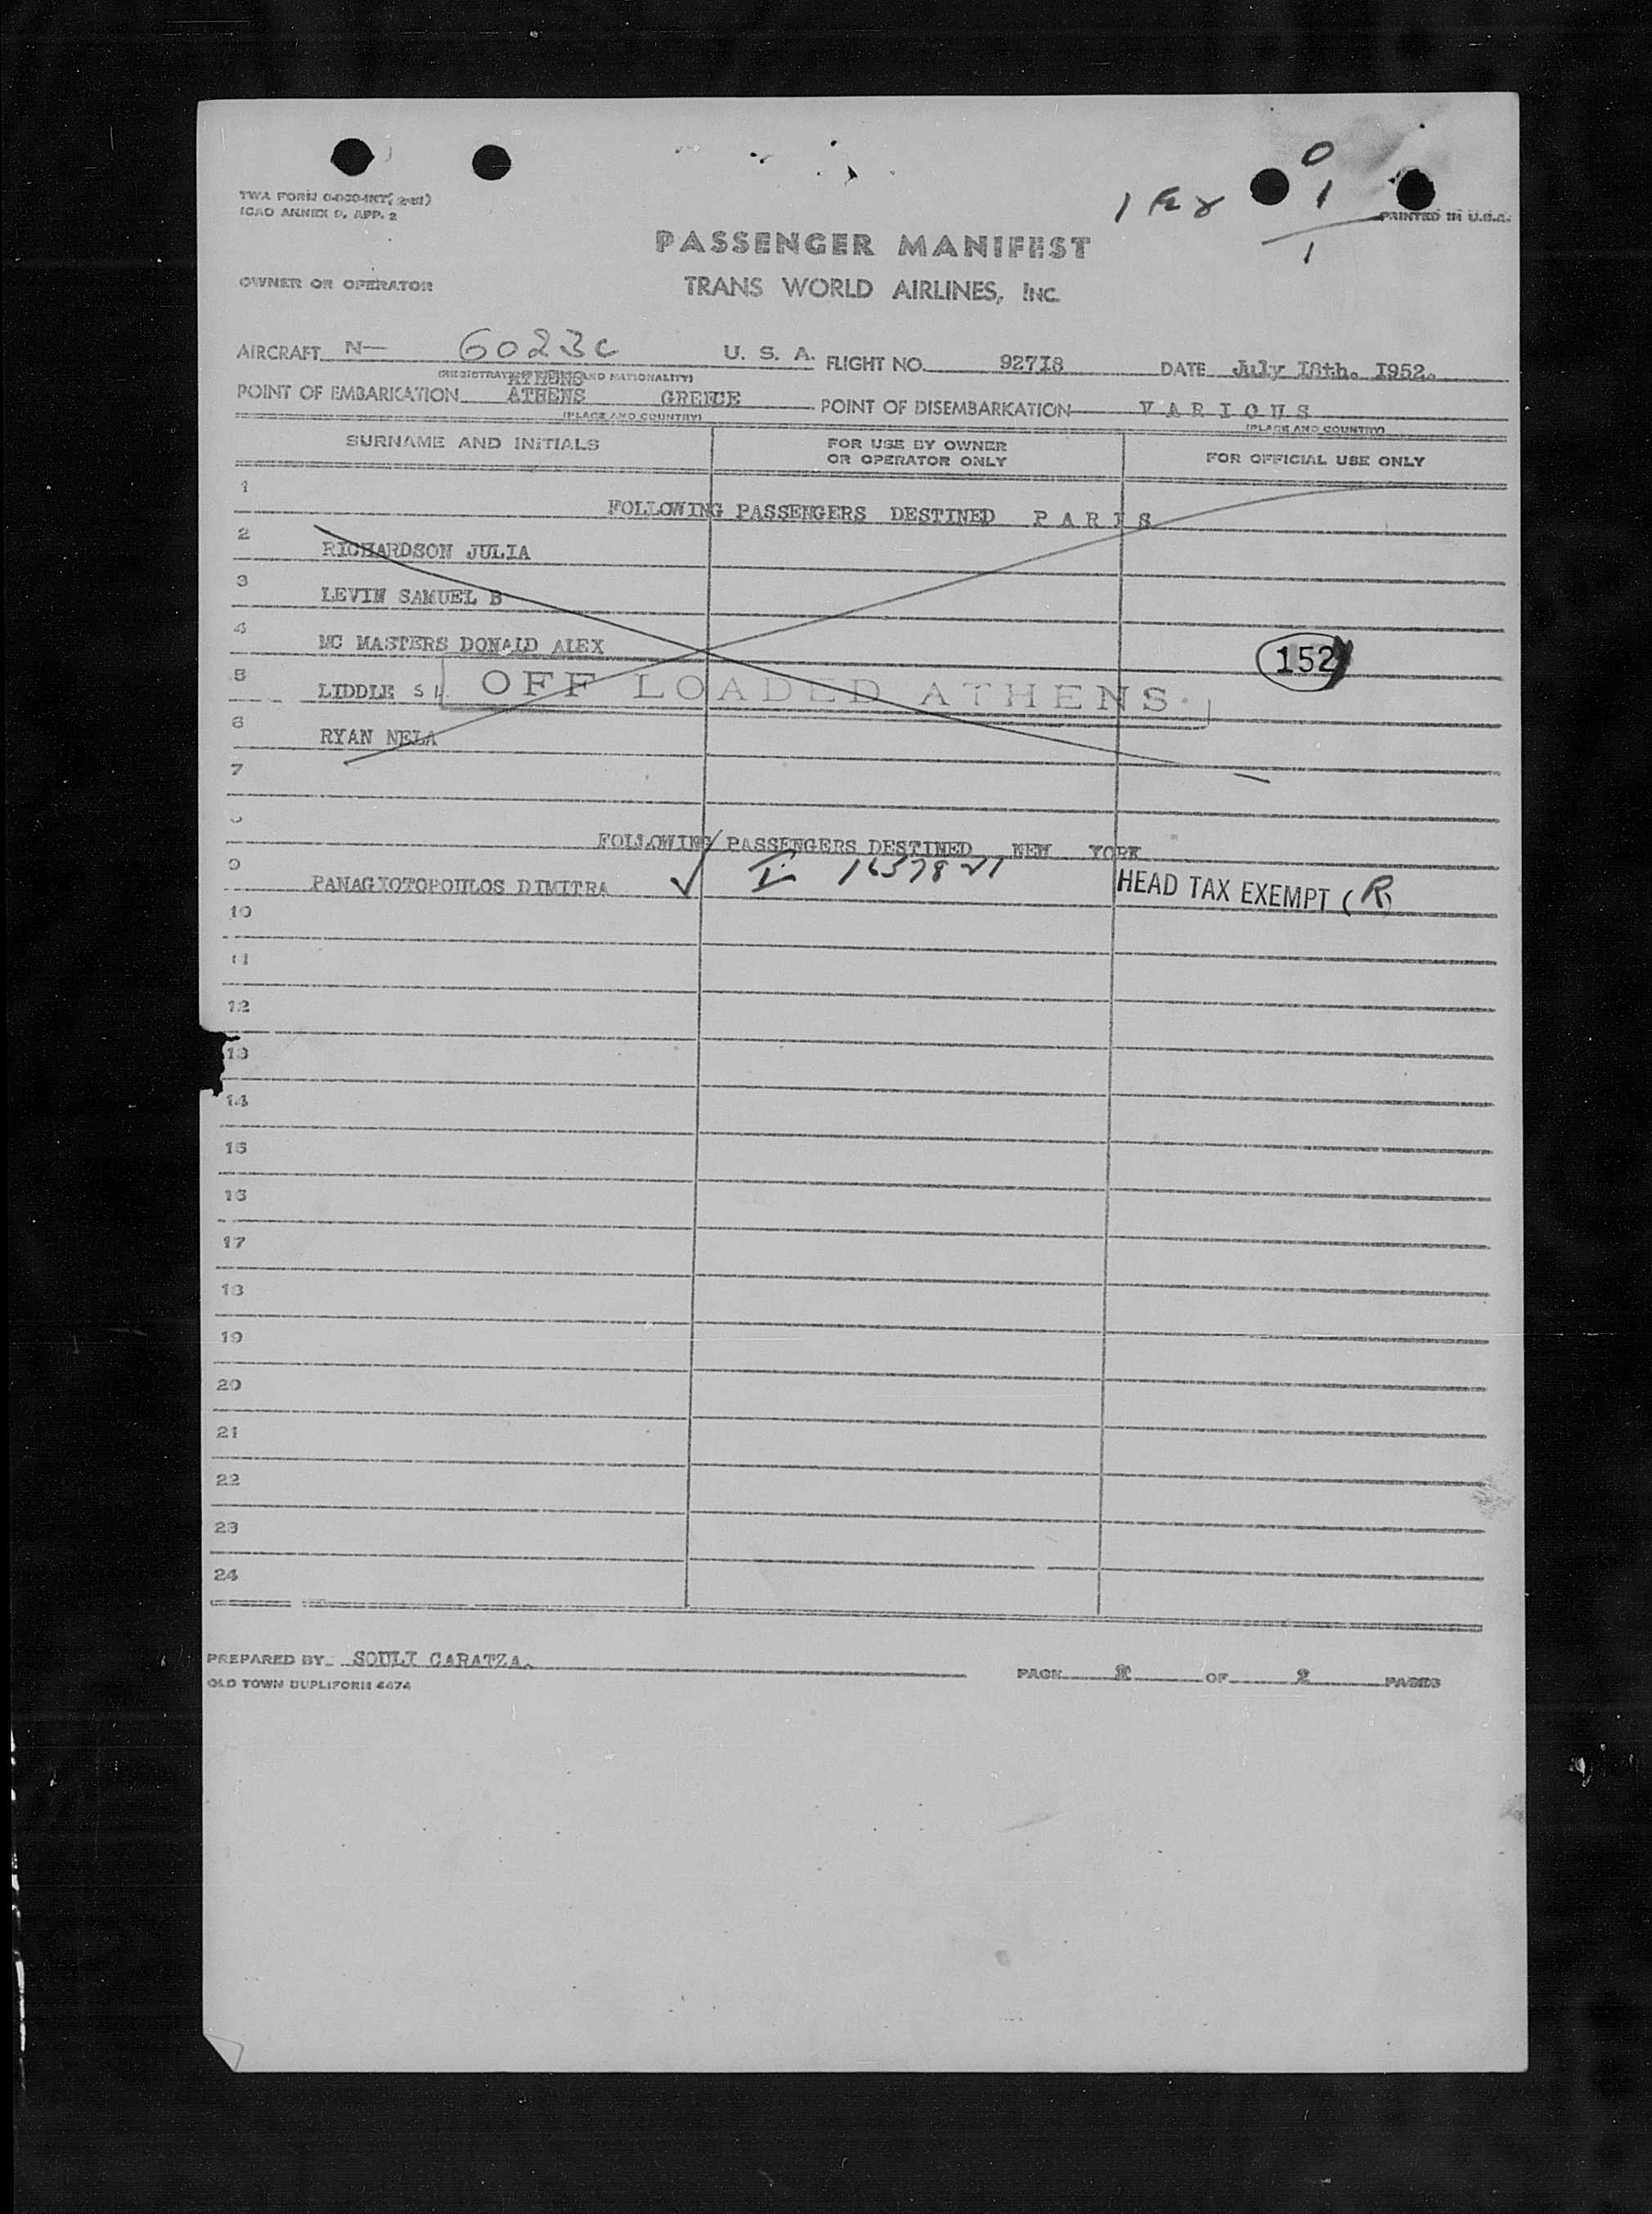 TWA FORM O-030-INT( 2-51)
ICAO ANNEX 9, APP. 2
0
1
1
PRINTED IN U.S.A.
PASSENGER MANIFEST
OWNER OR OPERATOR TRANS WORLD AIRLINES, INC.
AIRCRAFT N— 6023C U. S. A. FLIGHT NO. 92718 DATE July I8th. I952.
(REGISTRATION MARKS AND NATIONALITY)
POINT OF EMBARKATION ATHENS GREECE POINT OF DISEMBARKATION V A R I O U S
(PLACE AND COUNTRY) (PLACE AND COUNTRY)
SURNAME AND INITIALS FOR USE BY OWNER OR OPERATOR ONLY FOR OFFICIAL USE ONLY
1
FOLLOWING PASSENGERS DESTINED P A R I S
2 RICHARDSON JULIA
3 LEVIN SAMUEL B
4 MC MASTERS DONALD ALEX 152
5 LIDDLE S L OFF LOADED ATHENS.
6 RYAN NELA
7
8
FOLLOWING PASSENGERS DESTINED NEW YORK
9 PANAGIOTOPOULOS DIMITRA ✓ HEAD TAX EXEMPT (R)
10
11
12
13
14
15
16
17
18
19
20
21
22
23
24
PREPARED BY SOULI CARATZA. PAGE I OF 2 PAGES
OLD TOWN DUPLIFORM 4474